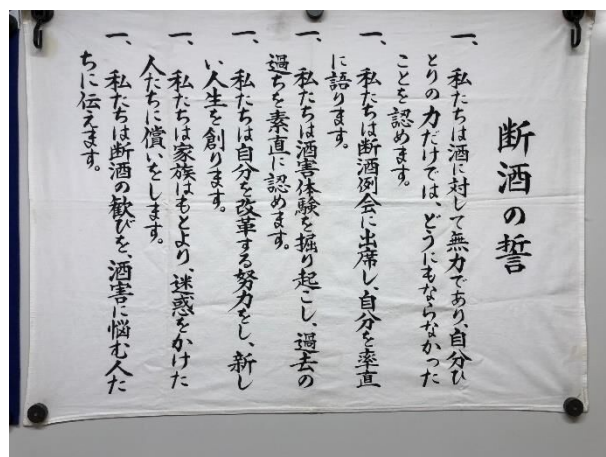 断酒の誓
一、私たちは酒に対して無力であり、自分ひ
とりの力だけでは、どうにもならなかった
ことを認めます。
一、私たちは断酒例会に出席し、自分を率直
に語ります。
一、私たちは酒害体験を掘り起こし、過去の
過ちを素直に認めます。
一、私たちは自分を改革する努力をし、新し
い人生を創ります。
一、私たちは家族はもとより、迷惑をかけた
人たちに償いをします。
一、私たちは断酒の歓びを、酒害に悩む人た
ちに伝えます。